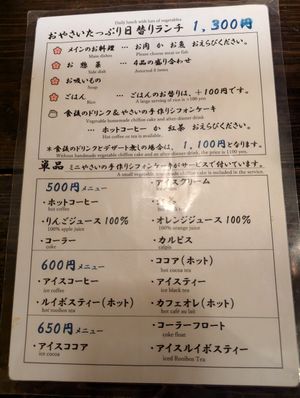 Daily lunch with lots of vegetables
おやさいたっぷり日替りランチ 1,300円
メインのお料理 … お肉 か お魚 おえらびください。
Main dish Please choose meat or fish
お惣菜 … 4品の盛り合わせ
Side dish
お吸いもの
Soup
ごはん … ごはんのお替りは、+100円です。
Rice A large serving of rice is +100 yen
食後のドリンク&やさいの手作りシフォンケーキ
Vegetable homemade chiffon cake and after-dinner drink
… ホットコーヒー か 紅茶 おえらびください。
Hot coffee or tea is available.
*食後のドリンクとデザート無しの場合は、1,100円となります。
Without handmade vegetable chiffon cake and after-dinner drink, the price is 1100 yen.
単品 ミニやさいの手作りシフォンケーキがサービスで付いています。
A small vegetable handmade chiffon cake is included in the service.
500円メニュー
・アイスクリーム
・ホットコーヒー
hot coffee
・りんごジュース 100%
100% apple juice
・オレンジジュース 100%
100% orange juice
・コーラー
coke
・カルピス
calpis
600円メニュー
・ココア(ホット)
hot cocoa tea
・アイスコーヒー
ice coffee
・アイスティー
ice black tea
・ルイボスティー(ホット)
hot rooibos tea
・カフェオレ(ホット)
hot café au lait
650円メニュー
・コーラーフロート
coke float
・アイスココア
ice cocoa
・アイスルイボスティー
iced Rooibos Tea